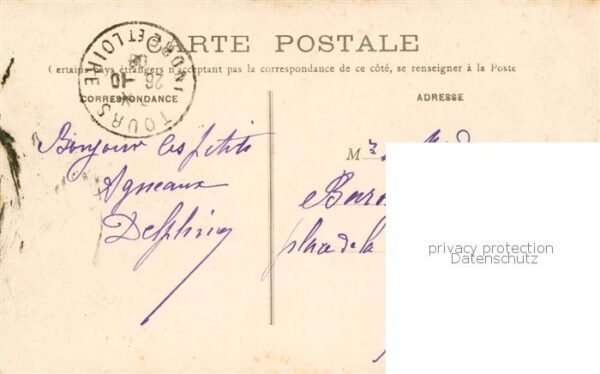 CARTE POSTALE
Certains pays étrangers n'acceptant pas la correspondance de ce côté, se renseigner à la Poste
CORRESPONDANCE
ADRESSE
TOURS
INDRE ET LOIRE
26 -10
08
Bonjour les petits
Agneaux
Delphine
M
place de la
privacy protection
Datenschutz